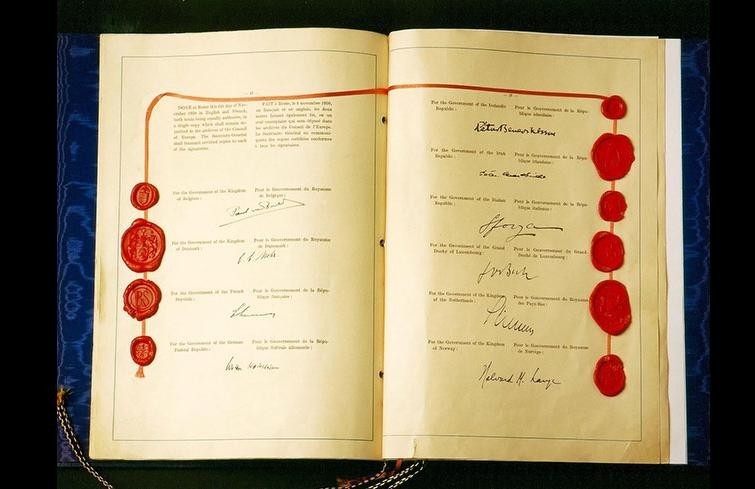 DONE at Rome this 4th day of No-
vember 1950 in English and French,
both texts being equally authentic, in
a single copy which shall remain de-
posited in the archives of the Council
of Europe. The Secretary-General
shall transmit certified copies to each
of the signatories.
FAIT à Rome, le 4 novembre 1950,
en français et en anglais, les deux
textes faisant également foi, en un
seul exemplaire qui sera déposé dans
les archives du Conseil de l'Europe.
Le Secrétaire Général en communi-
quera des copies certifiées conformes
à tous les signataires.
For the Government of the Kingdom
of Belgium:
Pour le Gouvernement du Royaume
de Belgique:
Paul van
For the Government of the Kingdom
of Denmark:
Pour le Gouvernement du Royaume
de Danemark:
For the Government of the French
Republic:
Pour le Gouvernement de la Répu-
blique française:
For the Government of the German
Federal Republic:
Pour le Gouvernement de la Répu-
blique fédérale allemande:
For the Government of the Icelandic
Republic:
Pour le Gouvernement de la Répu-
blique islandaise:
For the Government of the Irish
Republic:
Pour le Gouvernement de la Répu-
blique irlandaise:
For the Government of the Italian
Republic:
Pour le Gouvernement de la Répu-
blique italienne:
Sforza
For the Government of the Grand
Duchy of Luxembourg:
Pour le Gouvernement du Grand-
Duché de Luxembourg:
Jos Bech
For the Government of the Kingdom
of the Netherlands:
Pour le Gouvernement du Royaume
des Pays-Bas:
For the Government of the Kingdom
of Norway:
Pour le Gouvernement du Royaume
de Norvège:
Halvard M. Lange